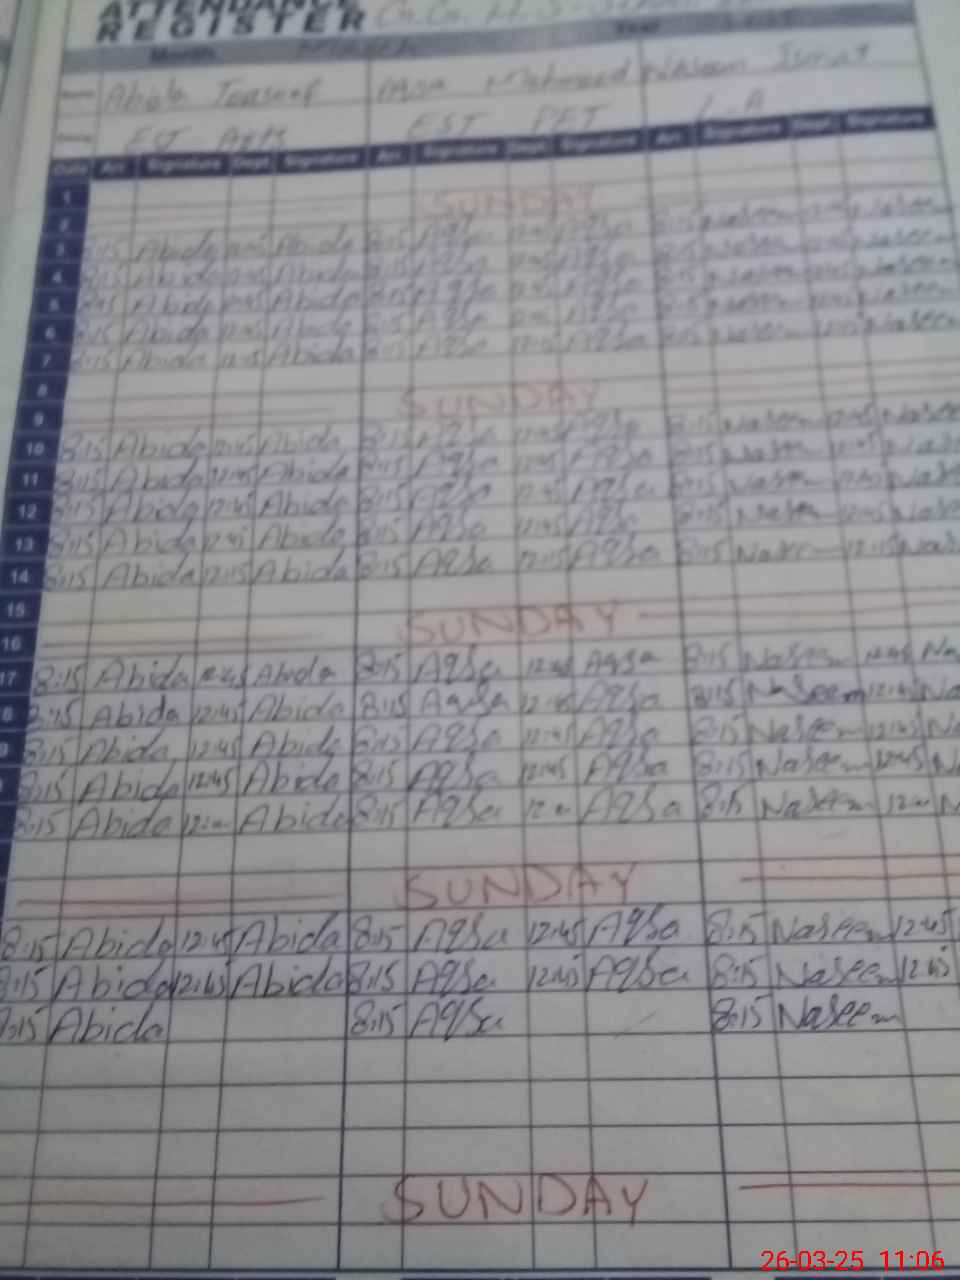 ATTENDANCE
REGISTER
Month Year
Abida
EST Arts EST PET L-A
Date Arr. Signature Dept. Signature Arr. Signature Dept. Signature Arr. Signature Dept. Signature
1
2 SUNDAY
3 8:15 Abida Abida 8:15 AqSa AqSa 8:15 Naseem Naseem
4 8:15 Abida Abida 8:15 AqSa AqSa 8:15 Naseem Naseem
5 8:15 Abida Abida 8:15 AqSa AqSa 8:15 Naseem Naseem
6 8:15 Abida Abida 8:15 AqSa AqSa 8:15 Naseem Naseem
7 8:15 Abida 12:15 Abida 8:15 AqSa 12:15 AqSa 8:15 Naseem 12:15 Naseem
8
9 SUNDAY
10 8:15 Abida 12:45 Abida 8:15 AqSa 12:45 AqSa 8:15 Naseem 12:45 Nasee
11 8:15 Abida 12:45 Abida 8:15 AqSa 12:45 AqSa 8:15 Naseem 12:45
12 8:15 Abida 12:45 Abida 8:15 AqSa 12:45 AqSa 8:15 Naseem 12:45
13 8:15 Abida 12:45 Abida 8:15 AqSa 12:45 AqSa 8:15 Naseem 12:45
14 8:15 Abida 12:15 Abida 8:15 AqSa 12:15 AqSa 8:15 Naseem 12:15
15
16 SUNDAY
17 8:15 Abida 12:45 Abida 8:15 AqSa 12:45 AqSa 8:15 Naseem 12:45 Na
8 8:15 Abida 12:45 Abida 8:15 AqSa 12:45 AqSa 8:15 Naseem 12:45 Na
9 8:15 Abida 12:45 Abida 8:15 AqSa 12:45 AqSa 8:15 Naseem 12:45 Na
8:15 Abida 12:45 Abida 8:15 AqSa 12:45 AqSa 8:15 Naseem 12:45 Na
8:15 Abida Abida 8:15 AqSa AqSa 8:15 Naseem N
SUNDAY
8:15 Abida 12:45 Abida 8:15 AqSa 12:45 AqSa 8:15 Naseem 12:45
8:15 Abida 12:45 Abida 8:15 AqSa 12:45 AqSa 8:15 Naseem 12:45
8:15 Abida 8:15 AqSa 8:15 Naseem
SUNDAY
26-03-25 11:06